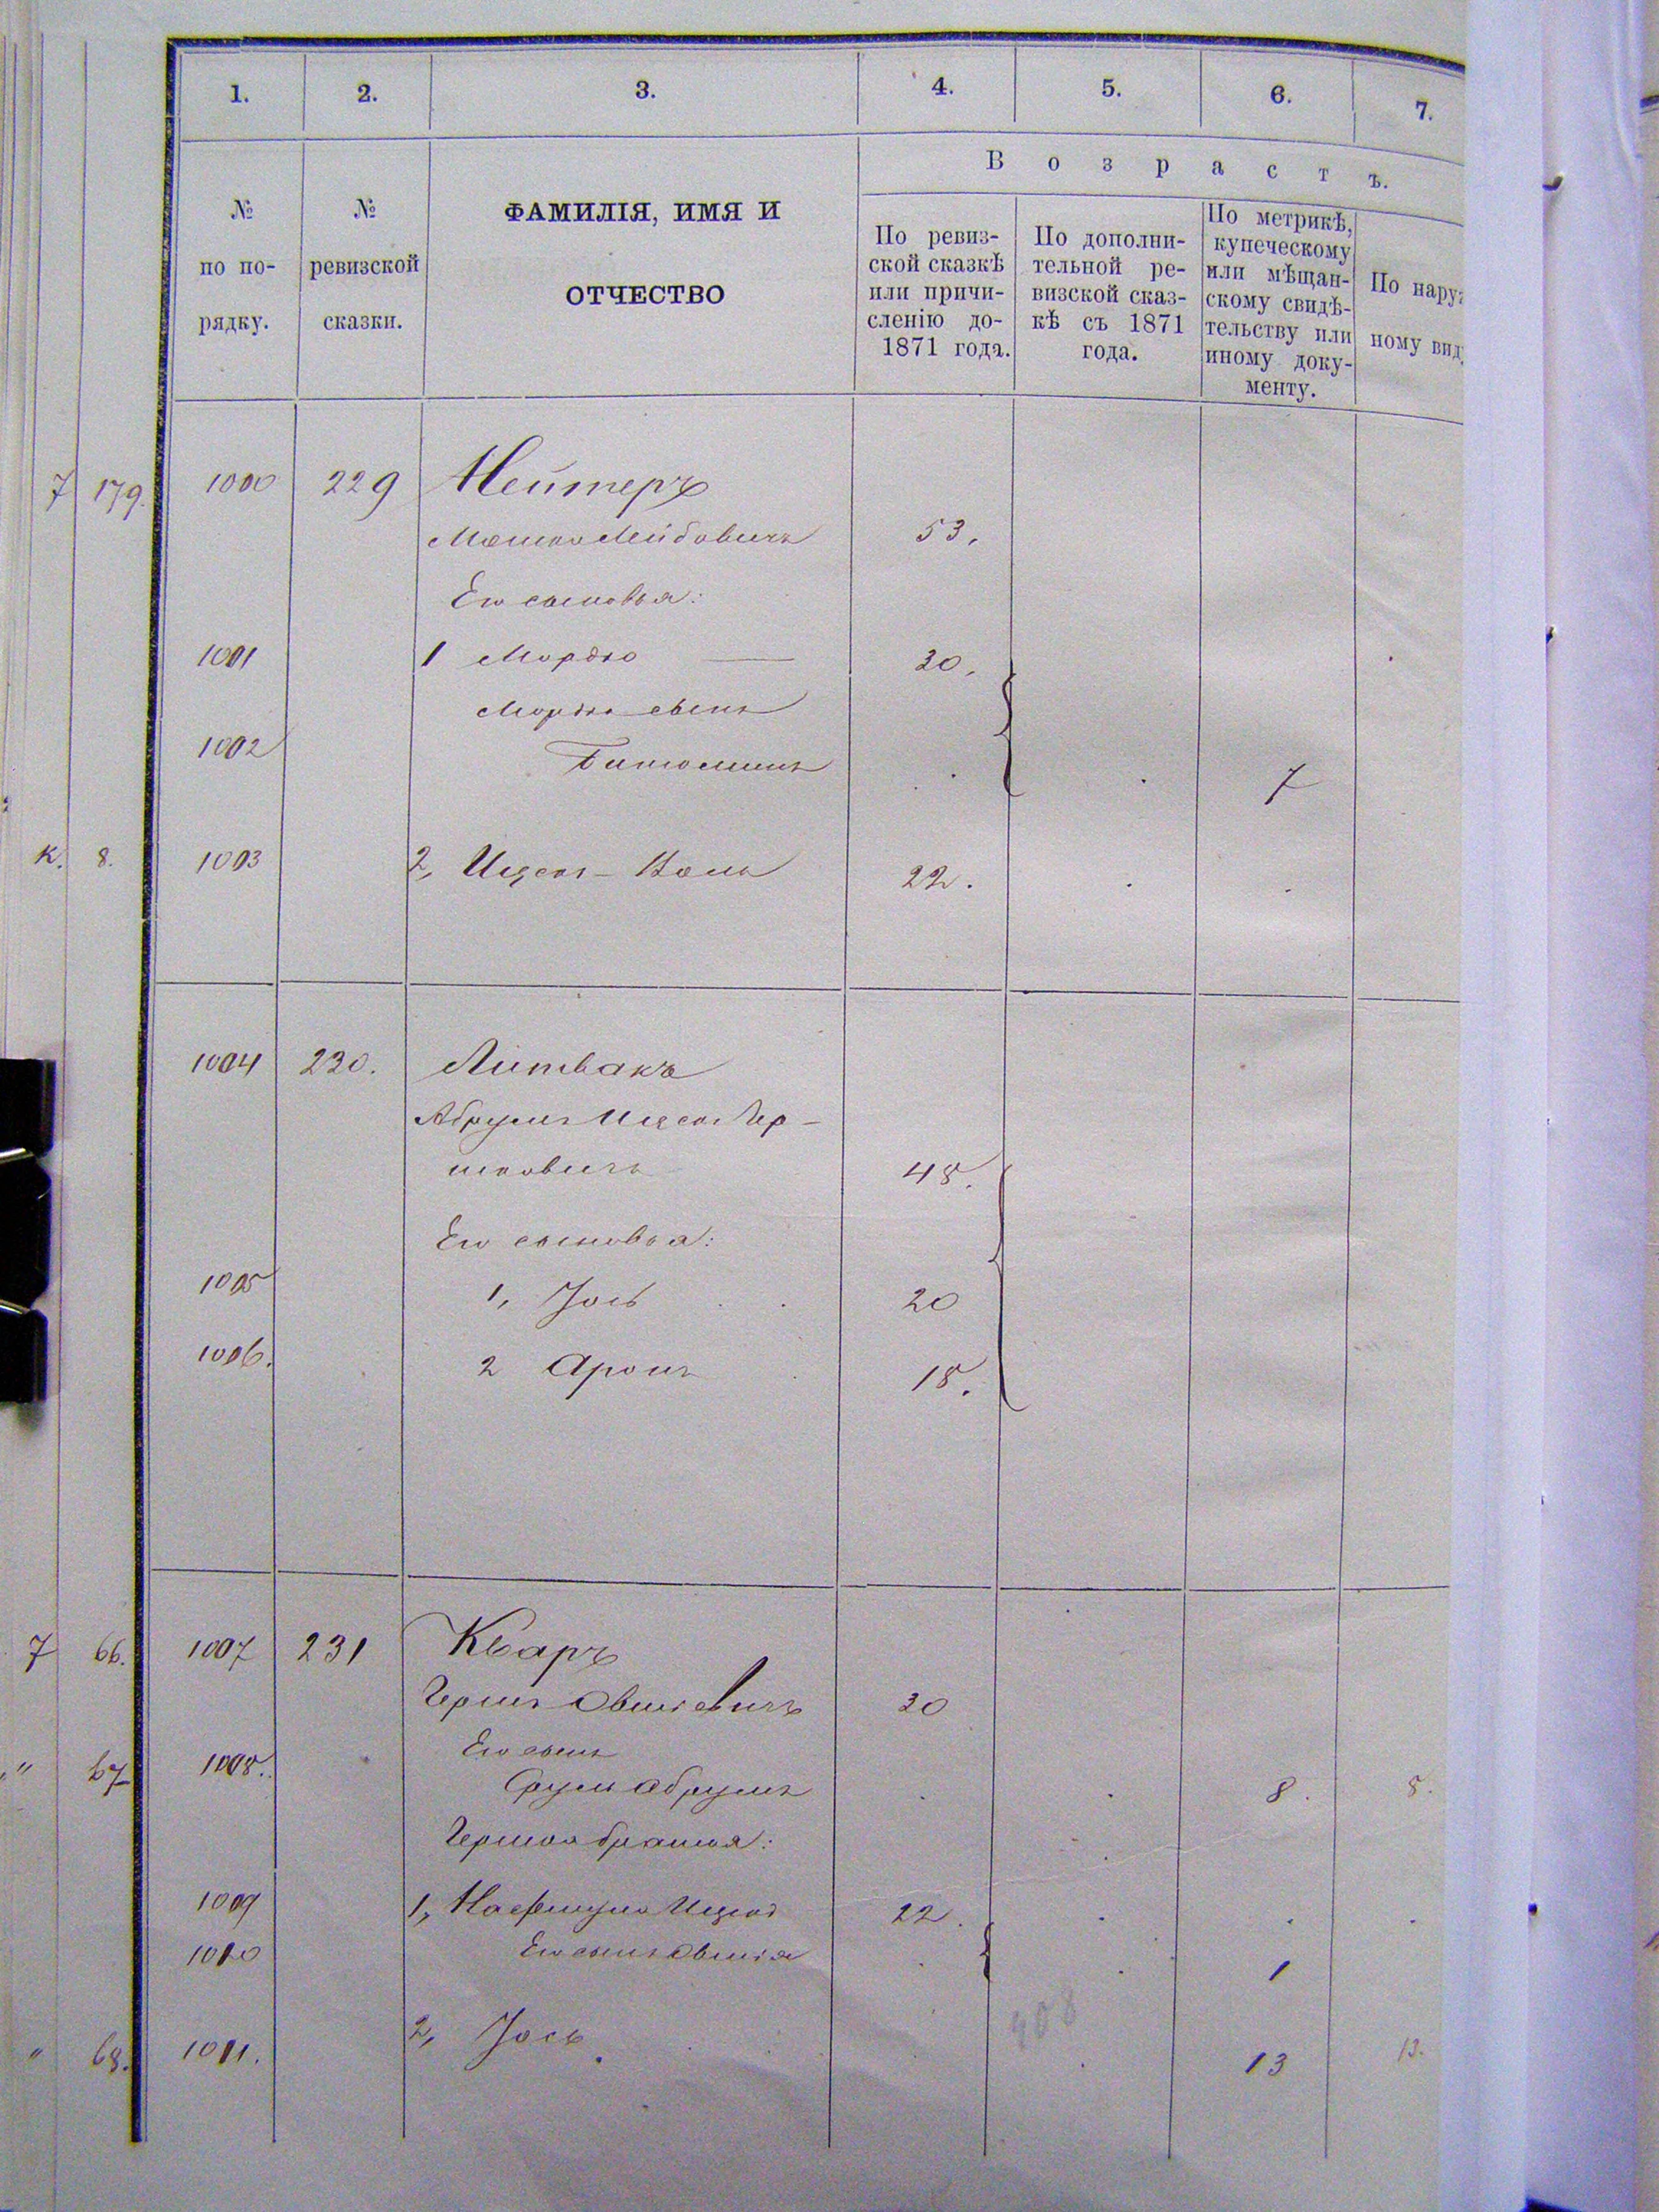 1. 2. 3. 4. 5. 6. 7.
Возрастъ.
№ по по-рядку.
№ ревизской сказки.
ФАМИЛІЯ, ИМЯ И
ОТЧЕСТВО
По ревиз-
ской сказкѣ
или причи-
сленію до-
1871 года.
По дополни-
тельной ре-
визской сказ-
кѣ съ 1871
года.
По метрикѣ,
купеческому
или мѣщан-
скому свидѣ-
тельству или
иному доку-
менту.
По наруж
ному вид
7 179. 1000 229 Нейтеръ
Мошко Лейбовичъ 53.
Его сыновья:
1001 1 Мордко — 30.
Мордка сынъ
1002 7
К. 8. 1003 2, Ицекъ- 22.
1004 230. Литвакъ
Абрумъ Ицекъ Гер-
шковичъ 48.
Его сыновья:
1005 1, Іось 20
1006. 2 Аронъ 18.
7 66. 1007 231 Кваръ
Гершъ Овшіевичъ 30
Его сынъ
" 67 1008. Срумъ Абрумъ 8. 8.
Гершка братья:
1009 1, Ицекъ 22.
1010 Его сынъ Овшія 1
408
" 68. 1011. 2, Іось 13 13.